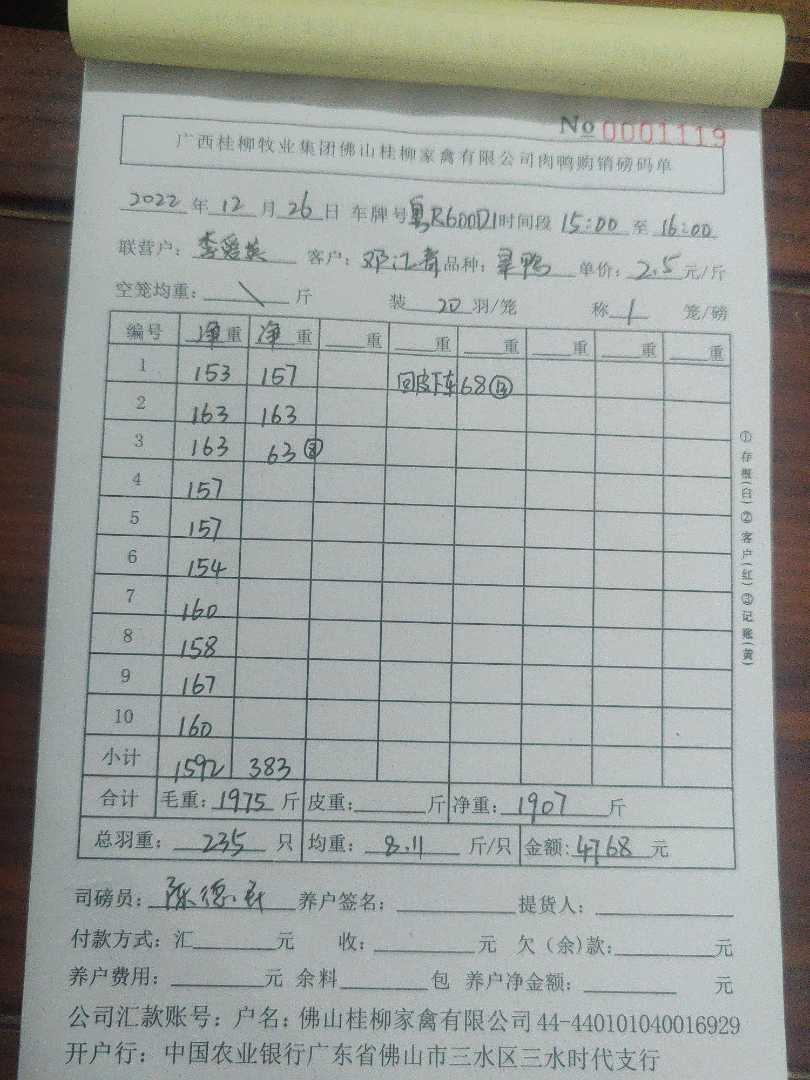 No 0001119
广西桂柳牧业集团佛山桂柳家禽有限公司肉鸭购销磅码单
2022 年 12 月 26 日 车牌号 粤R600D1 时间段 15:00 至 16:00
联营户: 李爱英 客户: 邓江 品种: 单价: 2.5 元/斤
空笼均重: \ 斤 装 20 羽/笼 称 1 笼/磅
编号 净重 净重 重 重 重 重 重 重
1 153 157 回皮下车68⑬
2 163 163
3 163 63⑧
4 157
5 157
6 154
7 160
8 158
9 167
10 160
小计 1592 383
合计 毛重: 1975 斤 皮重: 斤 净重: 1907 斤
总羽重: 235 只 均重: 8.11 斤/只 金额: 4768 元
司磅员: 陈德 养户签名: 提货人:
付款方式: 汇 元 收: 元 欠(余)款: 元
养户费用: 元 余料 包 养户净金额: 元
公司汇款账号: 户名: 佛山桂柳家禽有限公司 44-440101040016929
开户行: 中国农业银行广东省佛山市三水区三水时代支行
①存根(白)②客户(红)③记账(黄)